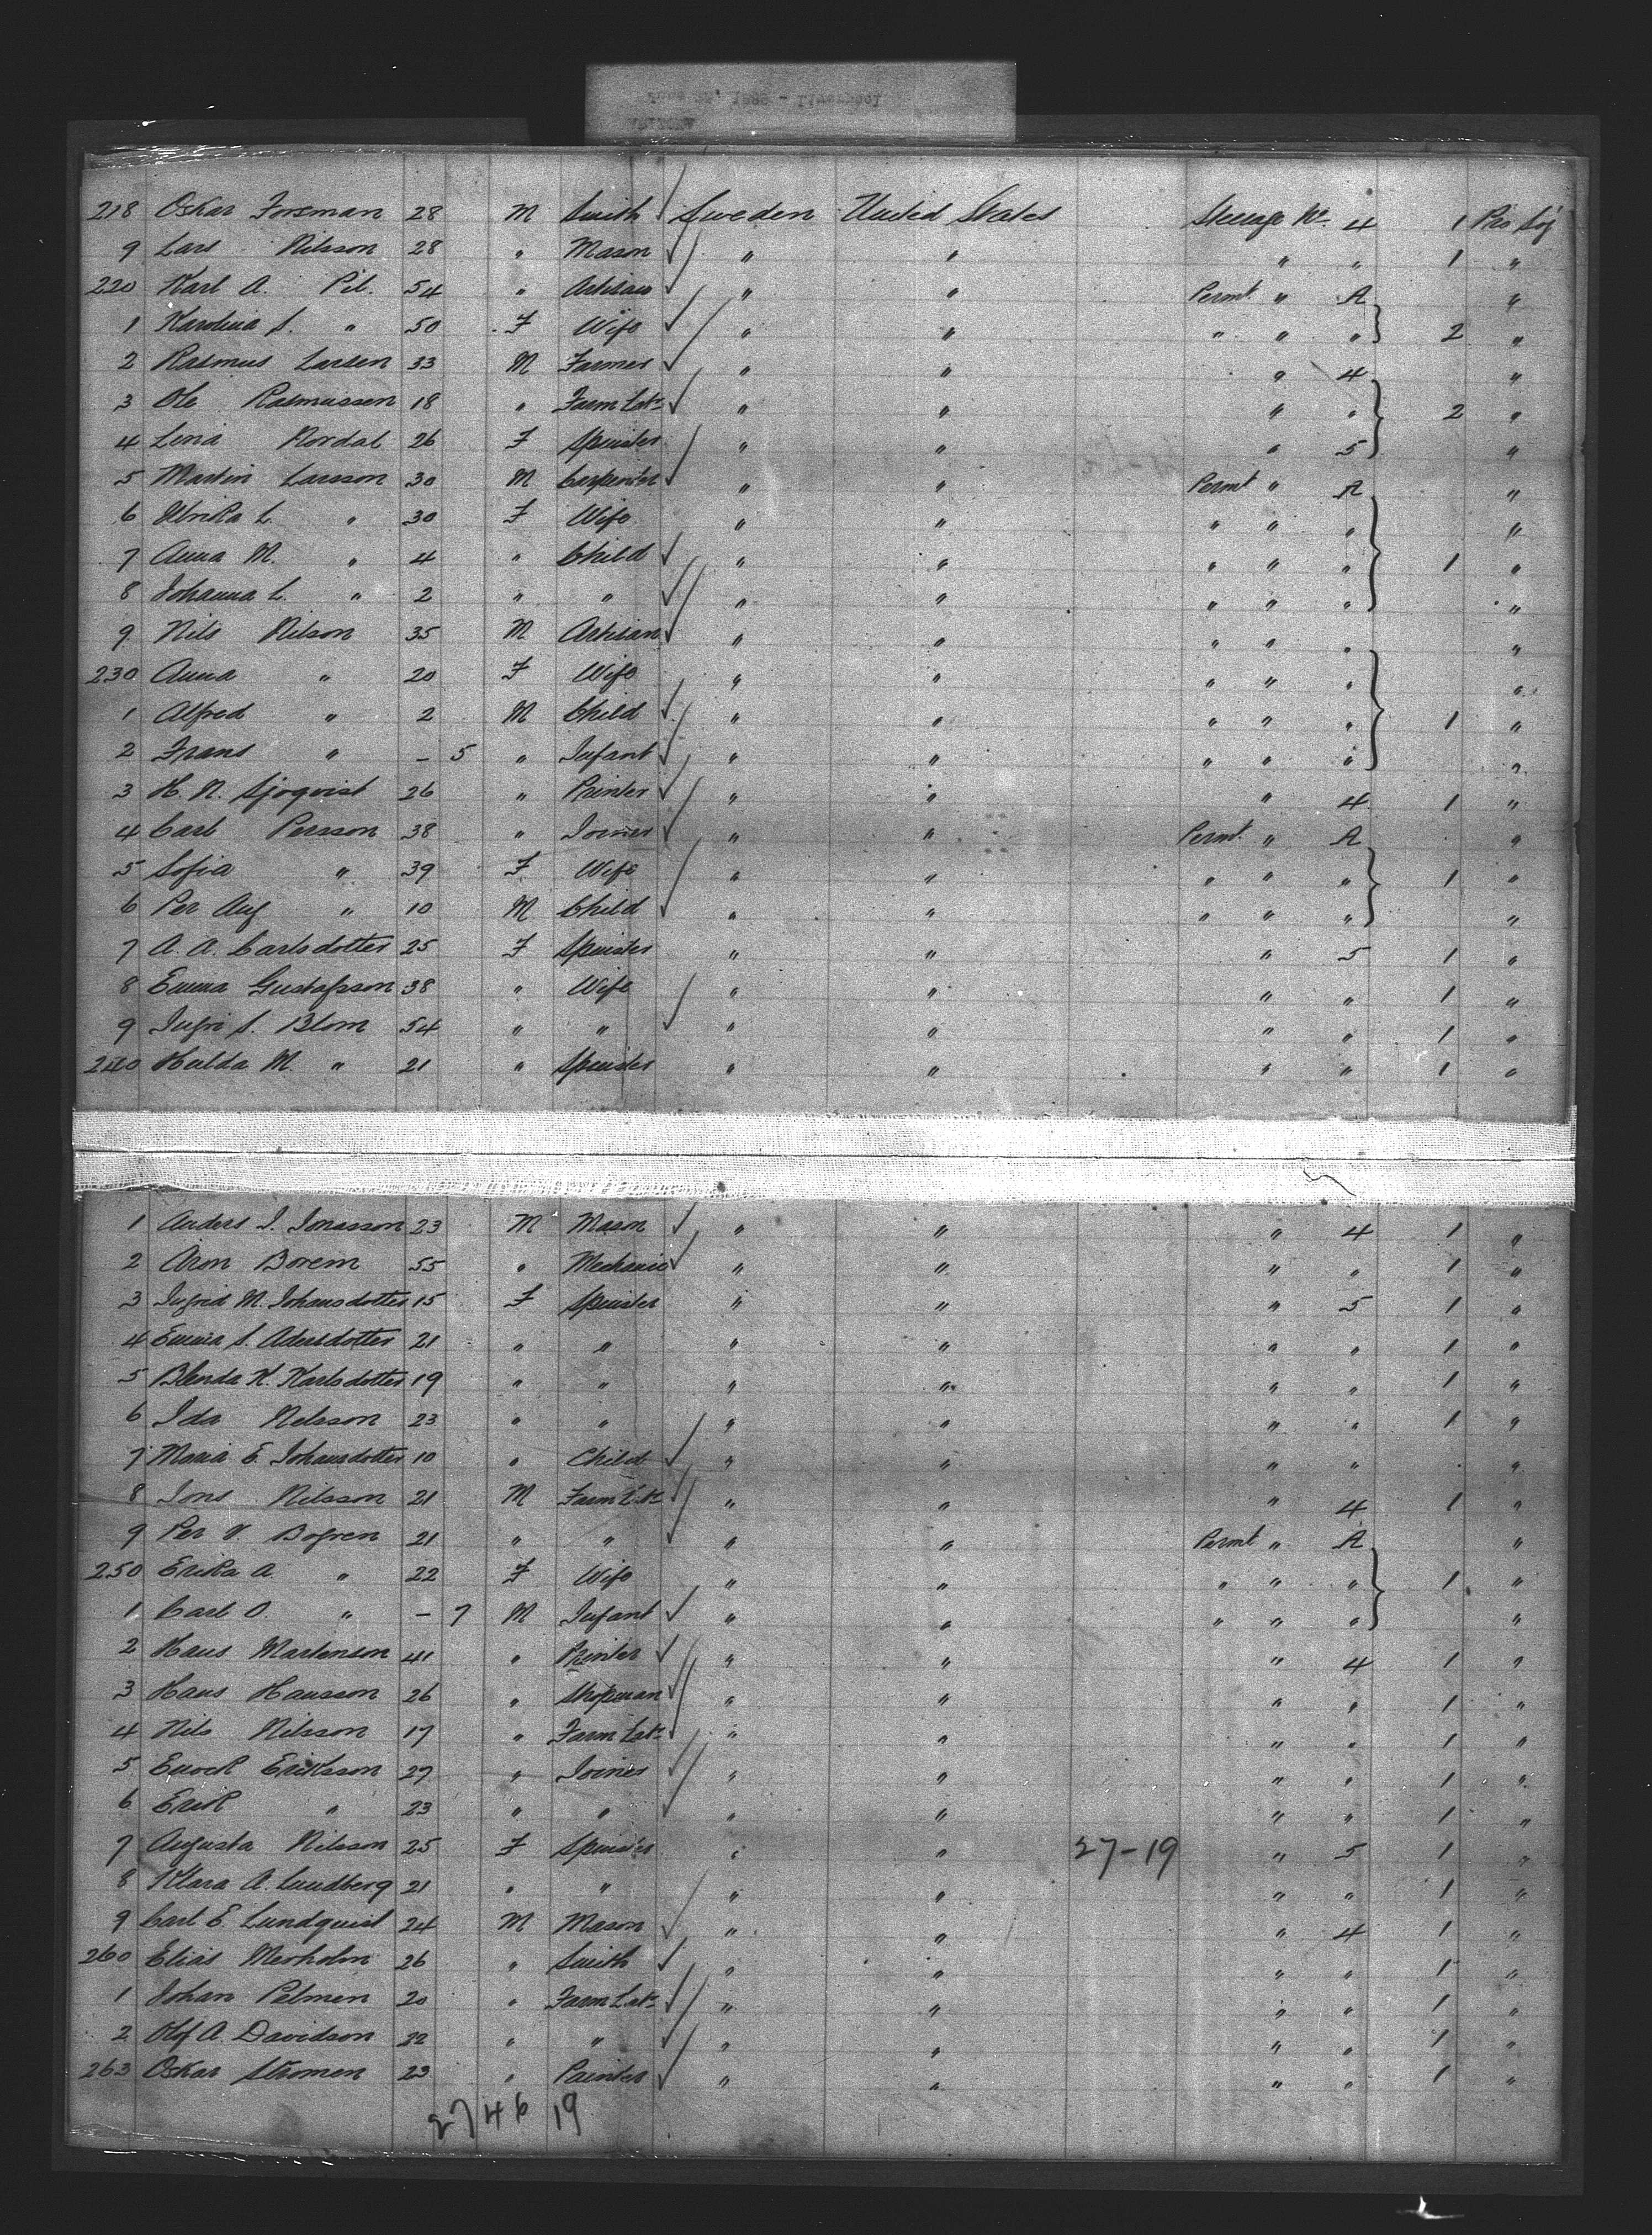 218 Oskar Forsman 28 M Smith Sweden United States Steerage No. 4 1 Pro Soj
9 Lars Nilsson 28 " Mason " " " " 1 "
220 Karl A. Pil. 54 " Artisan " " Permt. " A "
1 Karolina S. " 50 F Wife " " " " " 2 "
2 Rasmus Larsen 33 M Farmer " " " 4 "
3 Ole Rasmussen 18 " Farm Labr " " " " 2 "
4 Lena Nordal 26 F Spinster " " " 5 "
5 Martin Larsson 30 M Carpenter " " Permt " A "
6 Ulrika L. " 30 F Wife " " " " " "
7 Anna M. " 4 " Child " " " " " 1 "
8 Johanna L. " 2 " " " " " " " "
9 Nils Nilson 35 M Artisan " " " " " "
230 Anna " 20 F Wife " " " " " "
1 Alfred " 2 M Child " " " " " 1 "
2 Frans " – 5 " Infant " " " " " "
3 H. N. Sjoqvist 26 " Printer " " " 4 1 "
4 Carl Persson 38 " Joiner " " Permt. " A "
5 Sofia " 39 F Wife " " " " " 1 "
6 Per Aug " 10 M Child " " " " " "
7 A. A. Carlsdotter 25 F Spinster " " " 5 1 "
8 Emma Gustafsson 38 " Wife " " " " 1 "
9 Ingri S. Blom 54 " " " " " " 1 "
240 Hulda M. " 21 " Spinster " " " " 1 "
1 Anders J. Jonasson 23 M Mason " " " 4 1 "
2 Aron Borem 55 " Mechanic " " " " 1 "
3 Ingrid M. Johansdotter 15 F Spinster " " " 5 1 "
4 Emma S. Adersdotter 21 " " " " " " 1 "
5 Blenda K. Karlsdotter 19 " " " " " " 1 "
6 Ida Nelsson 23 " " " " " " 1 "
7 Maria E. Johansdotter 10 " Child " " " " "
8 Jons Nilsson 21 M Farm Labr " " " 4 1 "
9 Per V. Bogren 21 " " " " Permt " A "
250 Erika A. " 22 F Wife " " " " " 1 "
1 Carl O. " – 7 M Infant " " " " " "
2 Hans Martenson 41 " Printer " " " 4 1 "
3 Hans Hansson 26 " Shopman " " " " 1 "
4 Nils Nilsson 17 " Farm Labr " " " " 1 "
5 Enock Eriksson 27 " Joiner " " " " 1 "
6 Erik " 23 " " " " " " 1 "
7 Augusta Nilsson 25 F Spinster " " 27-19 " 5 1 "
8 Klara A. Lundberg 21 " " " " " " 1 "
9 Carl E. Lundquist 24 M Mason " " " 4 1 "
260 Elias Merholm 26 " Smith " " " " 1 "
1 Johan Pelmen 20 " Farm Labr " " " " 1 "
2 Olof A. Davidson 22 " " " " " " 1 "
263 Oskar Stromen 23 " Painter " " " " 1 "
27 46 19